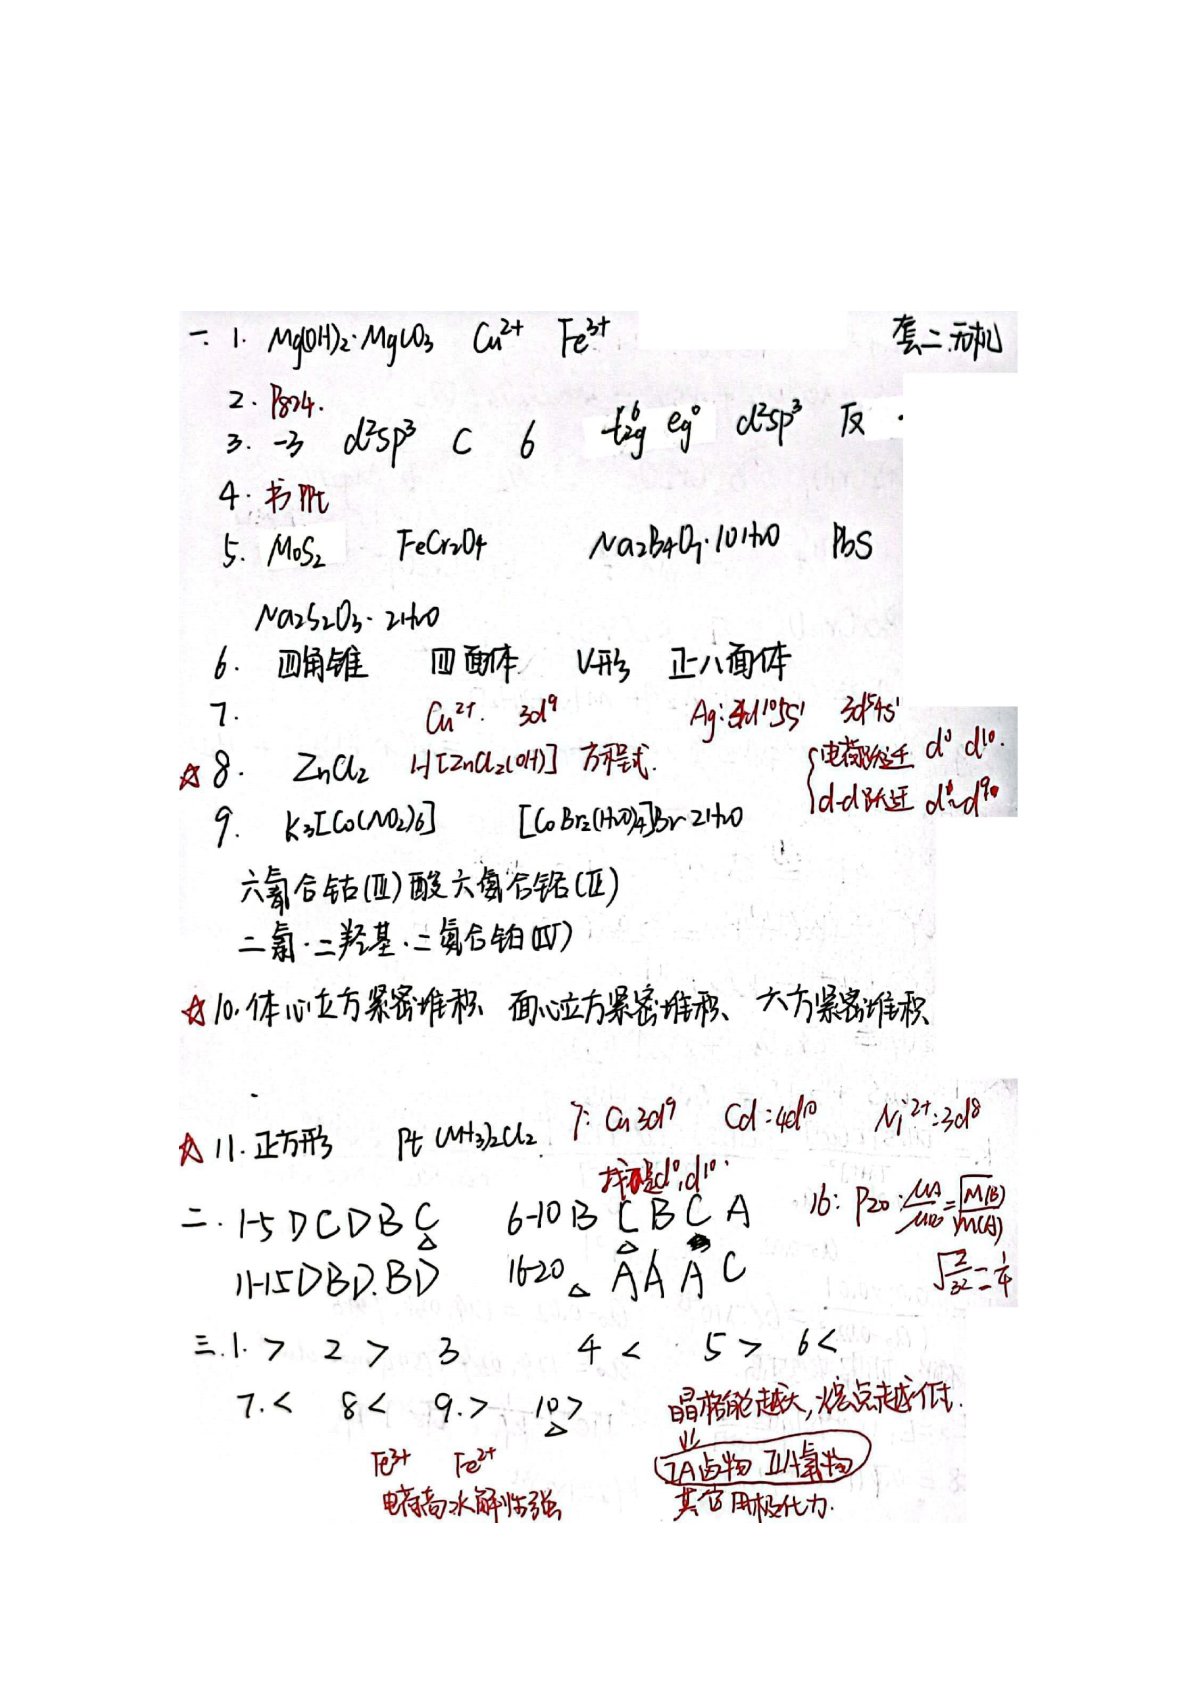 一. 1. Mg(OH)2·MgCO3 Cu²⁺ Fe³⁺ 套二.无机
2. P824.
3. -3 d²sp³ C 6 t2g⁶ eg⁰ d²sp³ 反
4. 书PPt
5. MoS2 FeCr2O4 Na2B4O7·10H2O PbS
Na2S2O3·2H2O
6. 四角锥 四面体 V形 正八面体
7. Cu²⁺. 3d⁹ Ag: 4d¹⁰5s¹ 3d⁵4s¹
☆ 8. ZnCl2 H[ZnCl2(OH)] 方程式. 电荷跃迁 d⁰ d¹⁰.
d-d跃迁 d⁰~d⁹
9. K3[Co(NO2)6] [CoBr2(H2O)4]Br·2H2O
六氰合钴(Ⅲ)酸六氨合铬(Ⅲ)
二氯·二羟基·二氨合铂(Ⅳ)
☆ 10. 体心立方紧密堆积、面心立方紧密堆积、六方紧密堆积
7: Cu 3d⁹ Cd: 4d¹⁰ Ni²⁺: 3d⁸
☆ 11. 正方形 Pt(NH3)2Cl2
找 d⁰, d¹⁰.
二. 1-5 D C D B C 6-10 B C B C A 16: P20. μA/μB=√M(B)/M(A)
11-15 D B D. B D 16-20 A A A C √2/32=1/4
三. 1. > 2 > 3 4 < 5 > 6 <
7. < 8 < 9. > 10 > 晶格能越大,熔点越低.
Fe³⁺ Fe²⁺ IA卤物 ⅡA氧物
电荷高水解性强 其它用极化力.